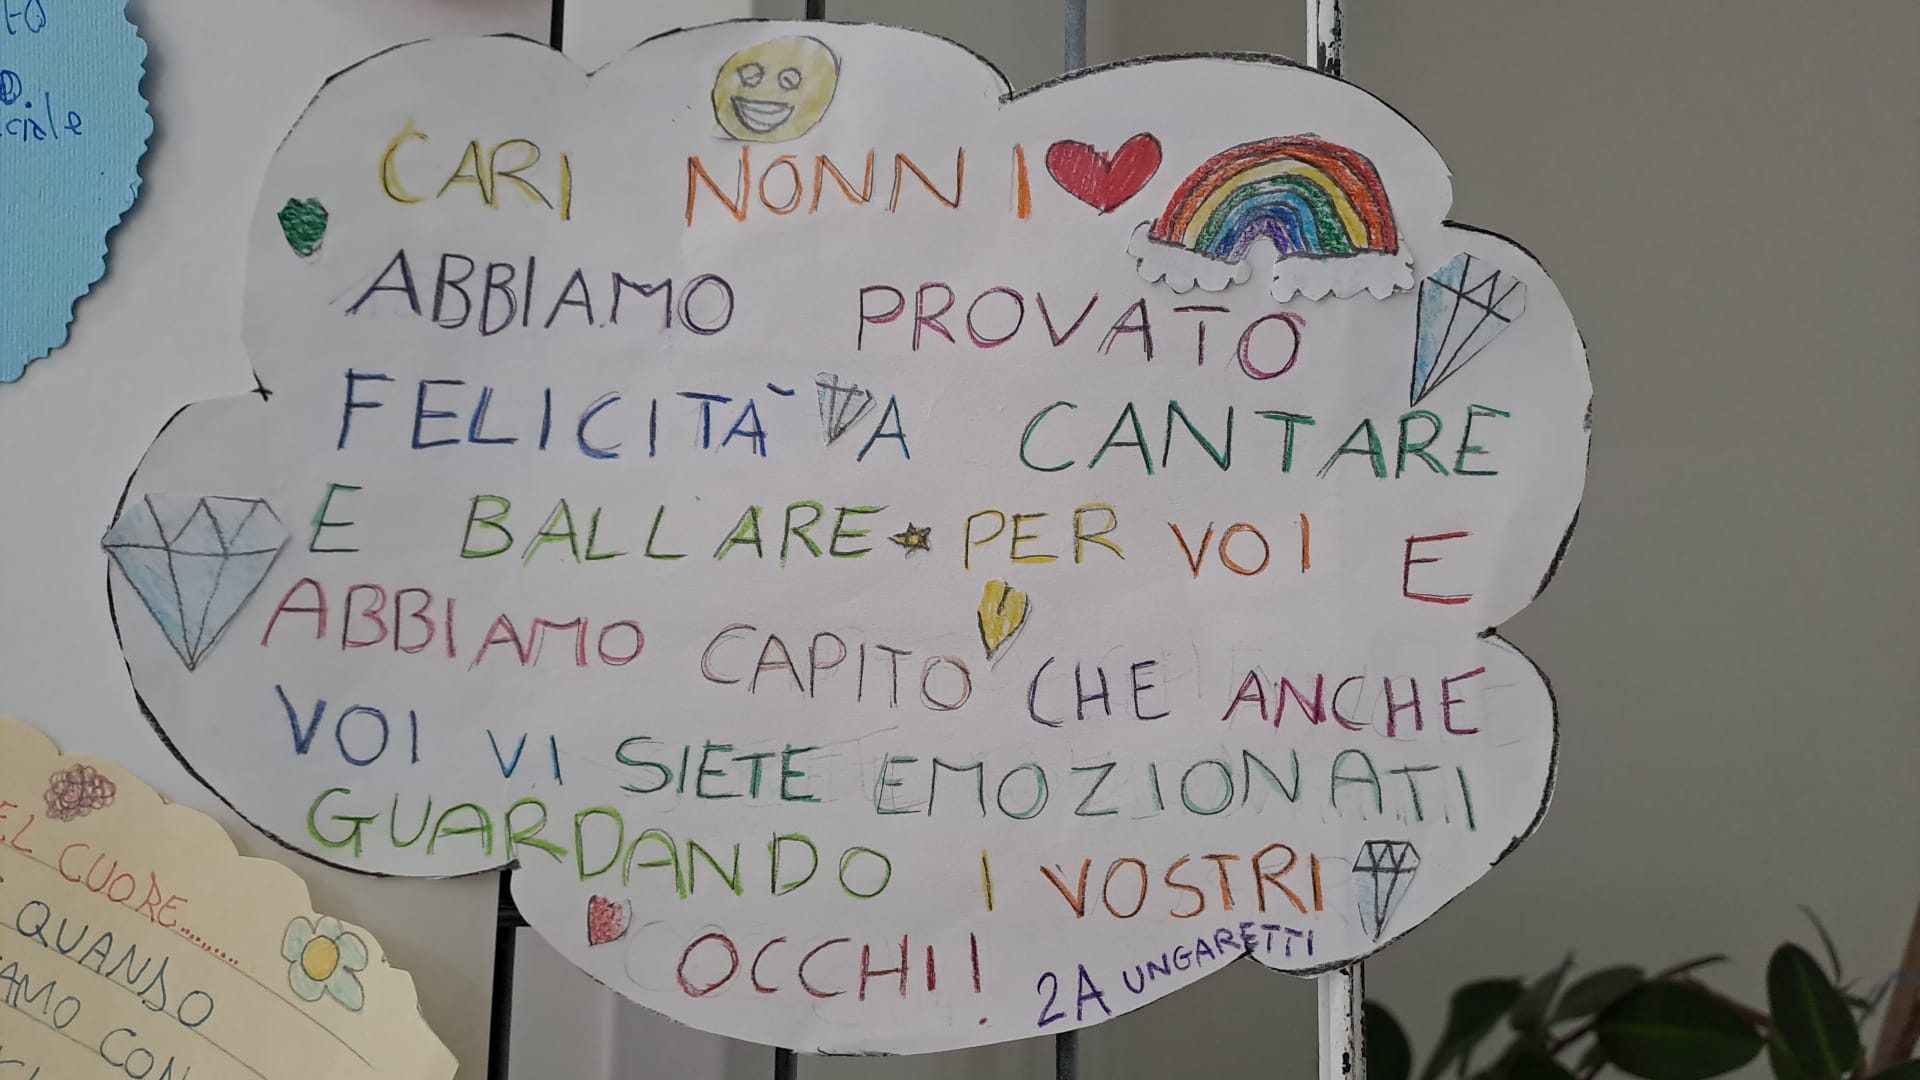 to
ciale
CARI NONNI
ABBIAMO PROVATO
FELICITÀ A CANTARE
E BALLARE PER VOI E
ABBIAMO CAPITO CHE ANCHE
VOI VI SIETE EMOZIONATI
GUARDANDO I VOSTRI
OCCHI!
2A UNGARETTI
EL CUORE........
QUANDO
AMO CON